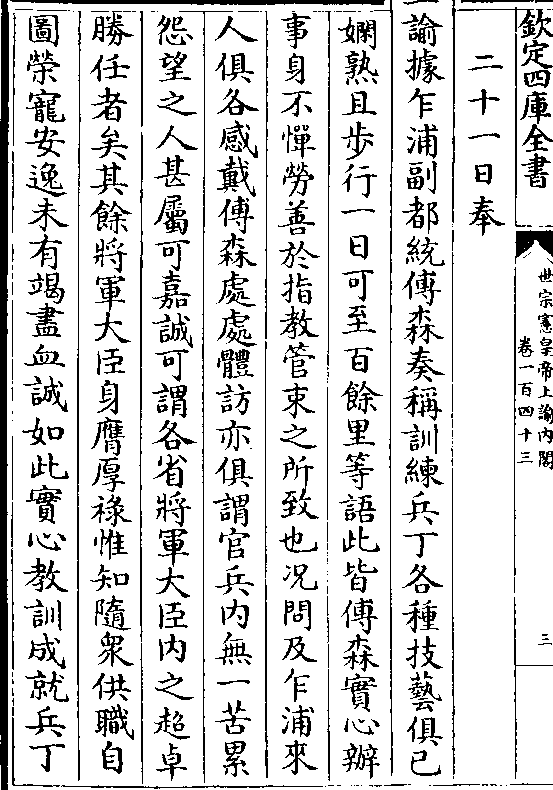 欽定四庫全書
世宗憲皇帝上諭內閣
卷一百四十三
三
二十一日奉
諭據乍浦副都統傅森奏稱訓練兵丁各種技藝俱已
嫻熟且步行一日可至百餘里等語此皆傅森實心辦
事身不憚勞善於指教管束之所致也况問及乍浦來
人俱各感戴傅森處處體訪亦俱謂官兵內無一苦累
怨望之人甚屬可嘉誠可謂各省將軍大臣內之超卓
勝任者矣其餘將軍大臣身膺厚祿惟知隨衆供職自
圖榮寵安逸未有竭盡血誠如此實心教訓成就兵丁